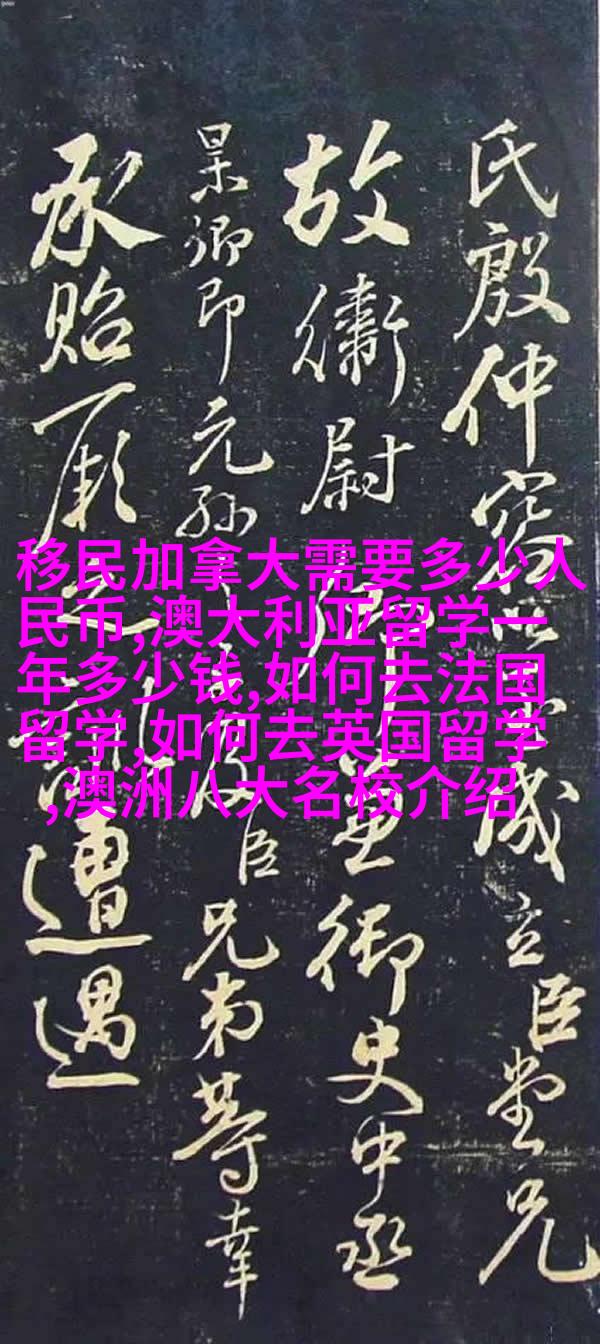 氏殷仲容以成立臣堂兄
故衛尉卿兼御史中丞
杲卿即元孫臣兄弟等幸
承貽厥之訓遭遇
移民加拿大需要多少人
民币,澳大利亚留学一
年多少钱,如何去法国
留学,如何去英国留学
,澳洲八大名校介绍